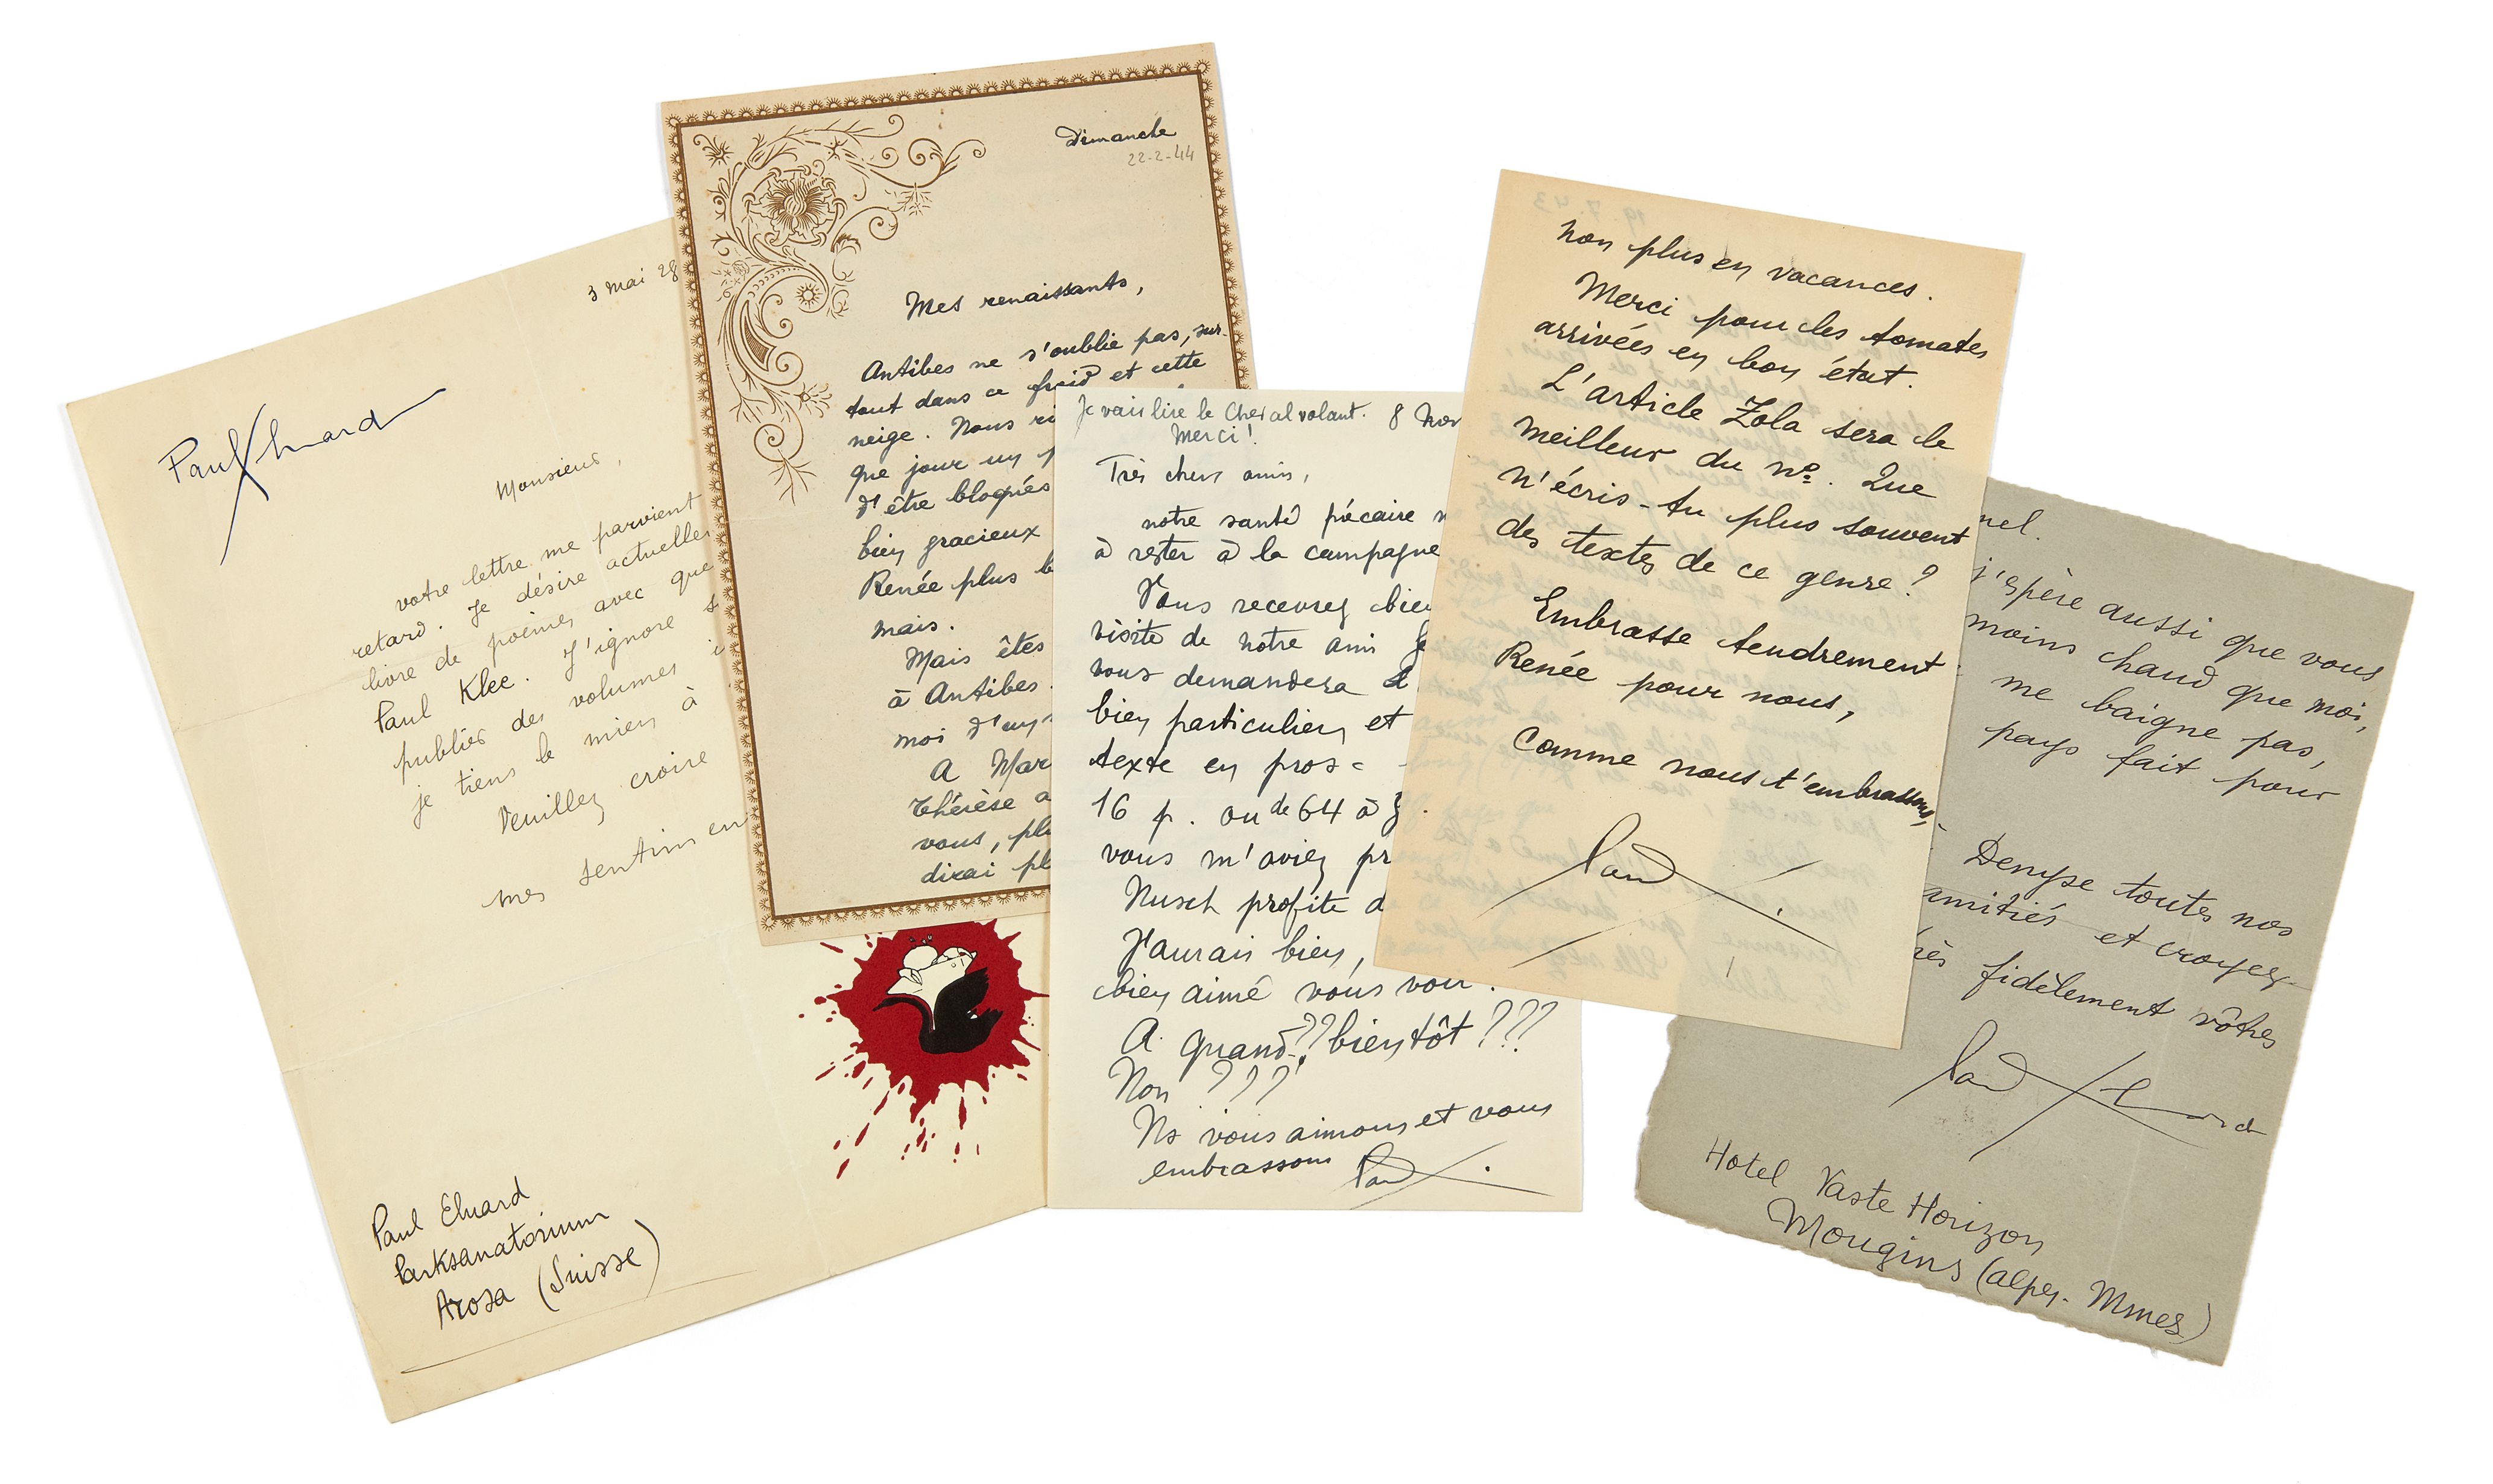 3 mai 28
Paul Eluard
Monsieur,
votre lettre me parvient
retard. Je désire actuellem
livre de poèmes avec que
Paul Klee. J'ignore s
publier des volumes i
je tiens le mien à
Veuillez croire
mes sentimen
Paul Eluard
Parksanatorium
Arosa (Suisse)
Dimanche
22-2-44
Mes renaissants,
Antibes ne s'oublie pas, sur-
tout dans ce froid et cette
neige. Nous ri
que jour un
d'être bloqués
bien gracieux
Renée plus b
mais.
Mais êtes
à Antibes.
moi d'un
A Mar
Thérèse a
vous, plu
dirai pl
Je vais lire le Cheval volant. 8 Nov
Merci!
Très chers amis,
notre santé précaire n
à rester à la campagne
Vous recevrez bien
visite de notre ami Je
vous demandera
bien particulier, et
texte en prose
16 p. ou de 64 à 3
vous m'aviez pr
Nusch profite d
J'aurais bien,
bien aimé vous voir.
A quand?? bientôt???
Non ???
Ns vous aimons et vous
embrassons Paul
19.7.43
non plus en vacances.
Merci pour les tomates
arrivées en bon état.
L'article Zola sera le
meilleur du nº. Que
n'écris-tu plus souvent
des textes de ce genre?
Embrasse tendrement
Renée pour nous,
Comme nous t'embrassons,
Paul
nel.
j'espère aussi que vous
moins chaud que moi,
me baigne pas,
pays fait pour
Denyse toutes nos
amitiés et croyez
très fidèlement vôtres
Paul Eluard
Hotel Vaste Horizon
Mougins (Alpes-Mmes)